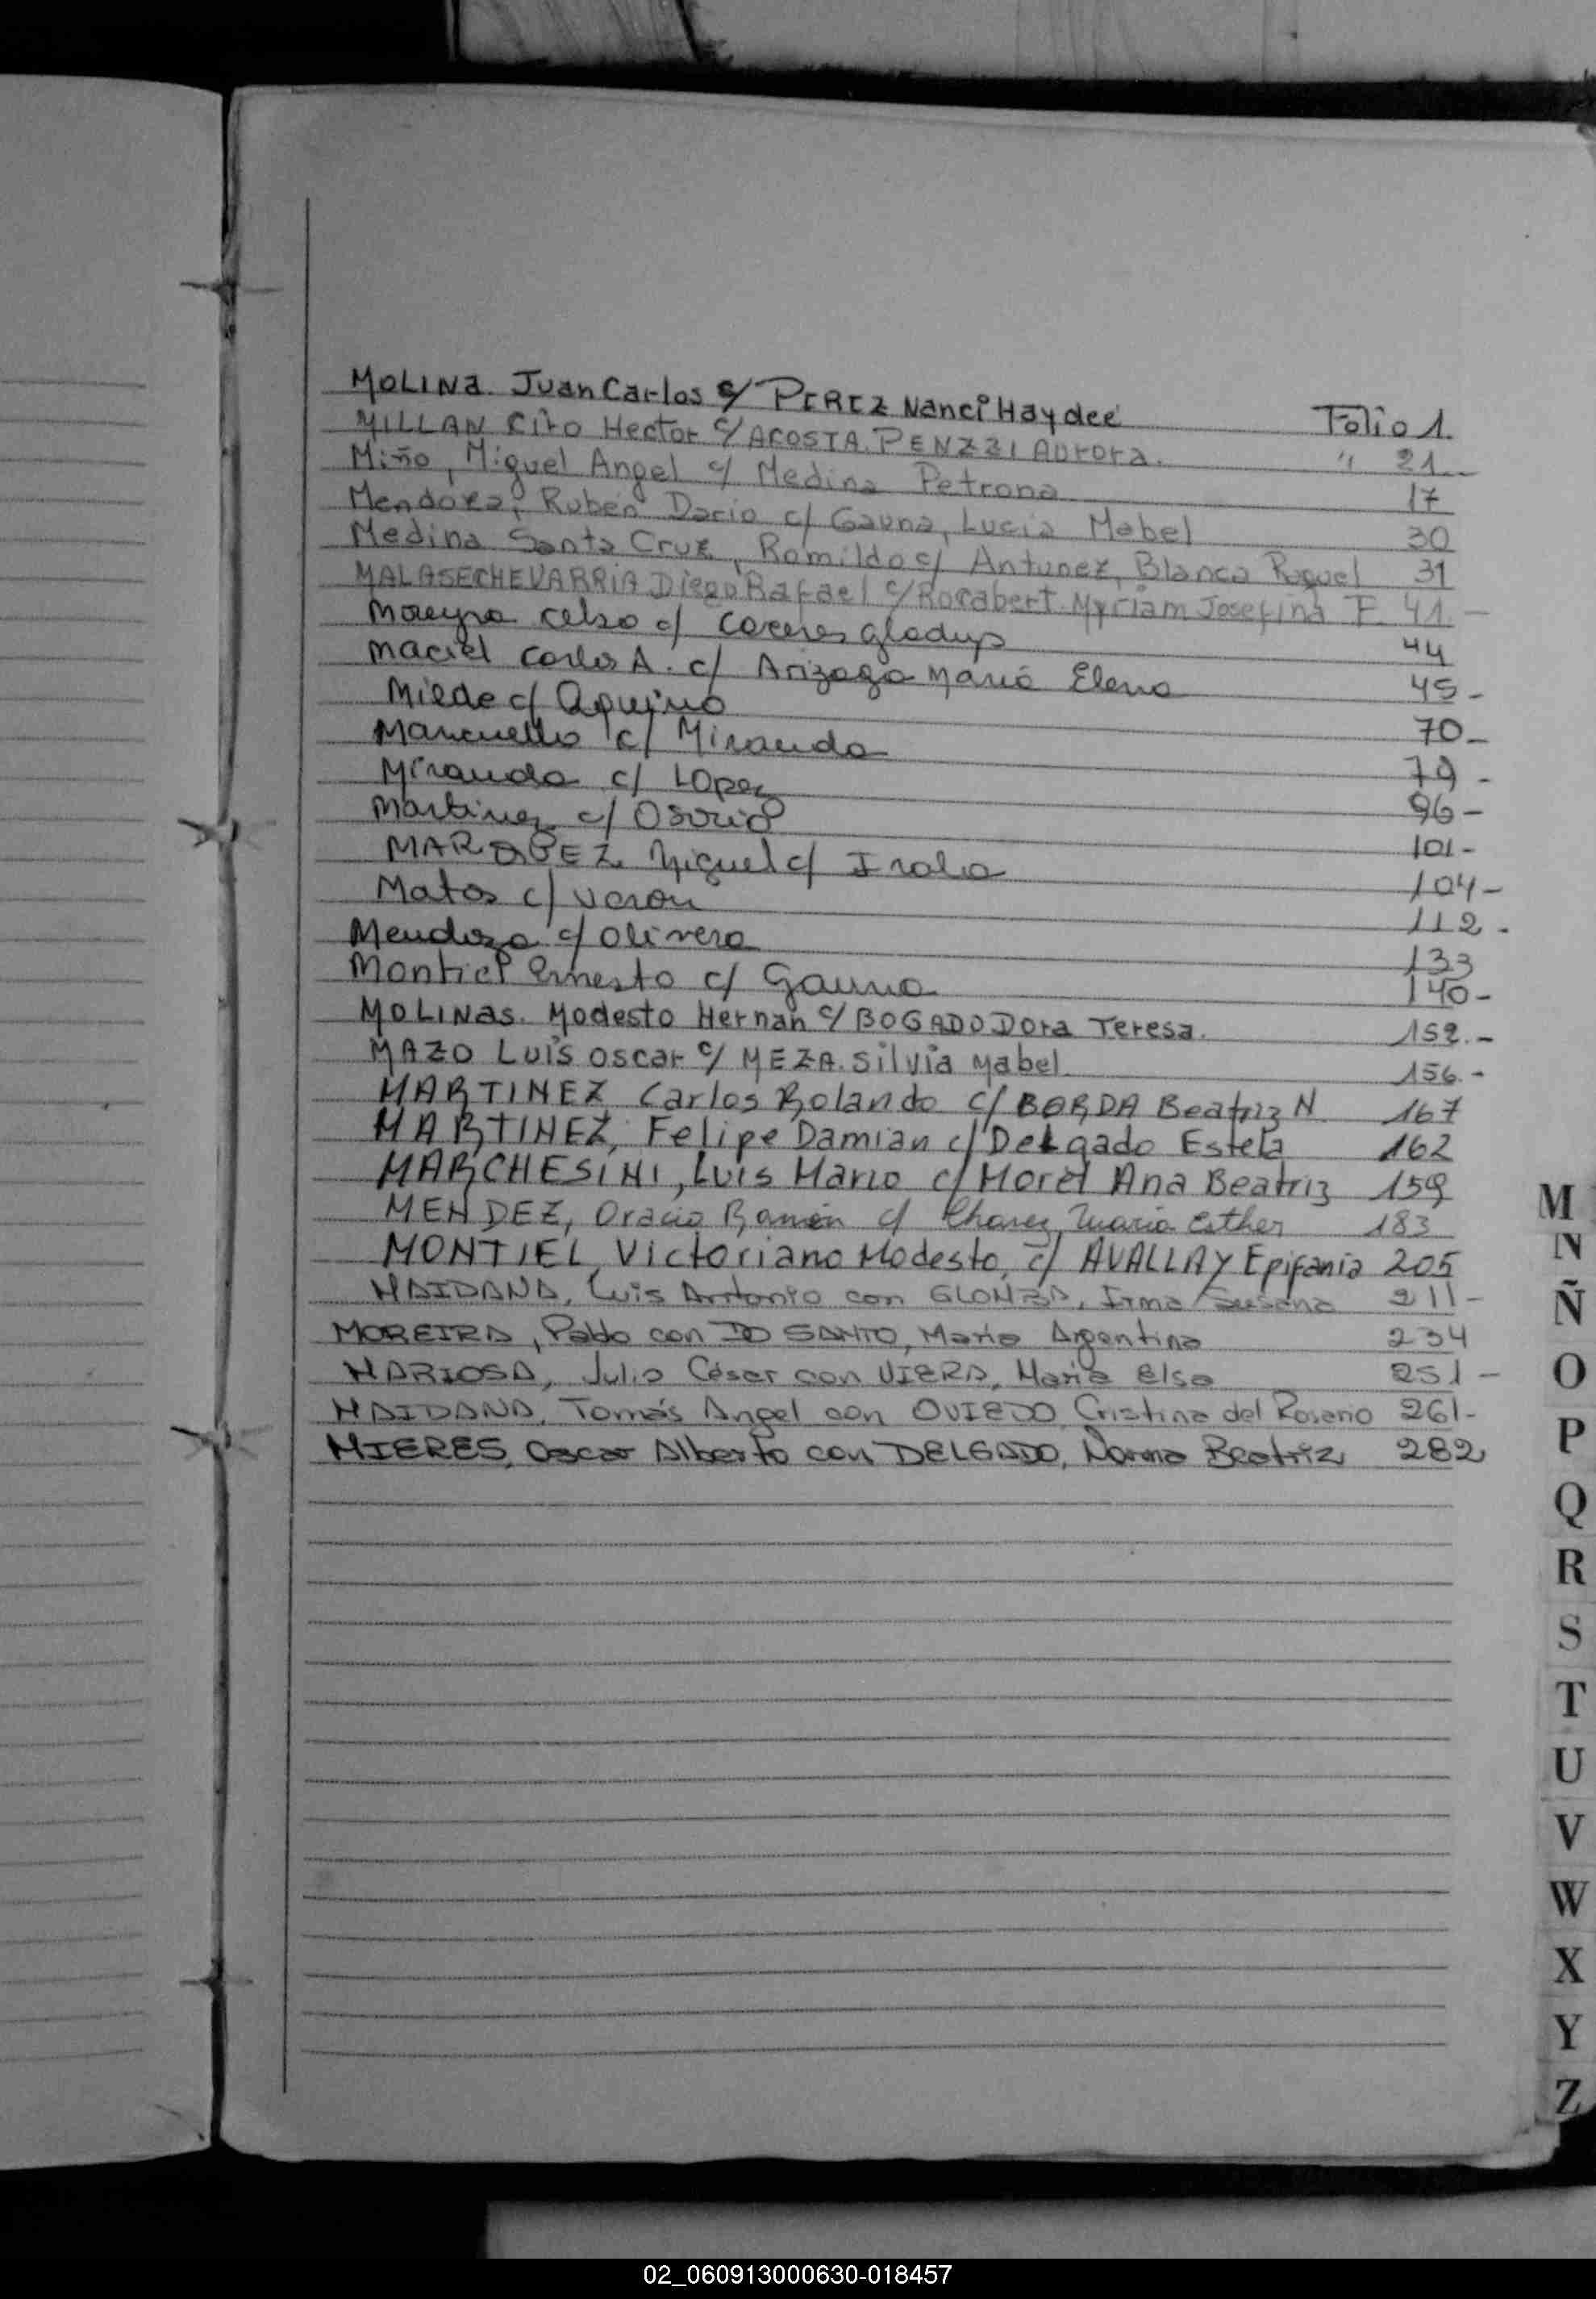 MOLINA Juan Carlos c/ PEREZ Nanci Haydee Folio 1.
MILLAN Cito Hector c/ ACOSTA PENZZI Aurora. " 21
Miño, Miguel Angel c/ Medina Petrona 17
Mendoza, Rubén Dario c/ Gauna, Lucia Mabel 30
Medina Santa Cruz, Romildo c/ Antunez, Blanca Raquel 31
MALASECHEVARRIA Diego Rafael c/ Rocabert Myriam Josefina F. 41
Moreyra Celso c/ Caceres Gladys 44
Maciel Carlos A. c/ Arizaga Maria Elena 45-
Mierde c/ Aquino 70-
Mancuello c/ Miranda 79-
Miranda c/ Lopez 96-
Martinez c/ Osorio 101-
MARQUEZ Miguel c/ Irala 104-
Matos c/ Veron 112-
Mendoza c/ Olivera 133
Montiel Ernesto c/ Gauna 140-
MOLINAS. Modesto Hernan c/ BOGADO Dora Teresa. 152.-
MAZO Luis Oscar c/ MEZA. Silvia Mabel 156.-
MARTINEZ Carlos Rolando c/ BORDA Beatriz N 167
MARTINEZ, Felipe Damian c/ Delgado Estela 162
MARCHESINI, Luis Mario c/ Morel Ana Beatriz 159
MENDEZ, Oracio Ramón c/ Chavez, Maria Esther 183
MONTIEL, Victoriano Modesto, c/ AVALLAY Epifania 205
MAIDANA, Luis Antonio con GLONZA, Irma Susana 211-
MOREIRA, Pablo con DO SANTO, Maria Argentina 234
MARIOSA, Julio César con VIERA, Maria Elsa 251-
MAIDANA, Tomás Angel con OVIEDO, Cristina del Rosario 261-
MIERES, Oscar Alberto con DELGADO, Norma Beatriz 282
M
N
Ñ
O
P
Q
R
S
T
U
V
W
X
Y
Z
02_060913000630-018457